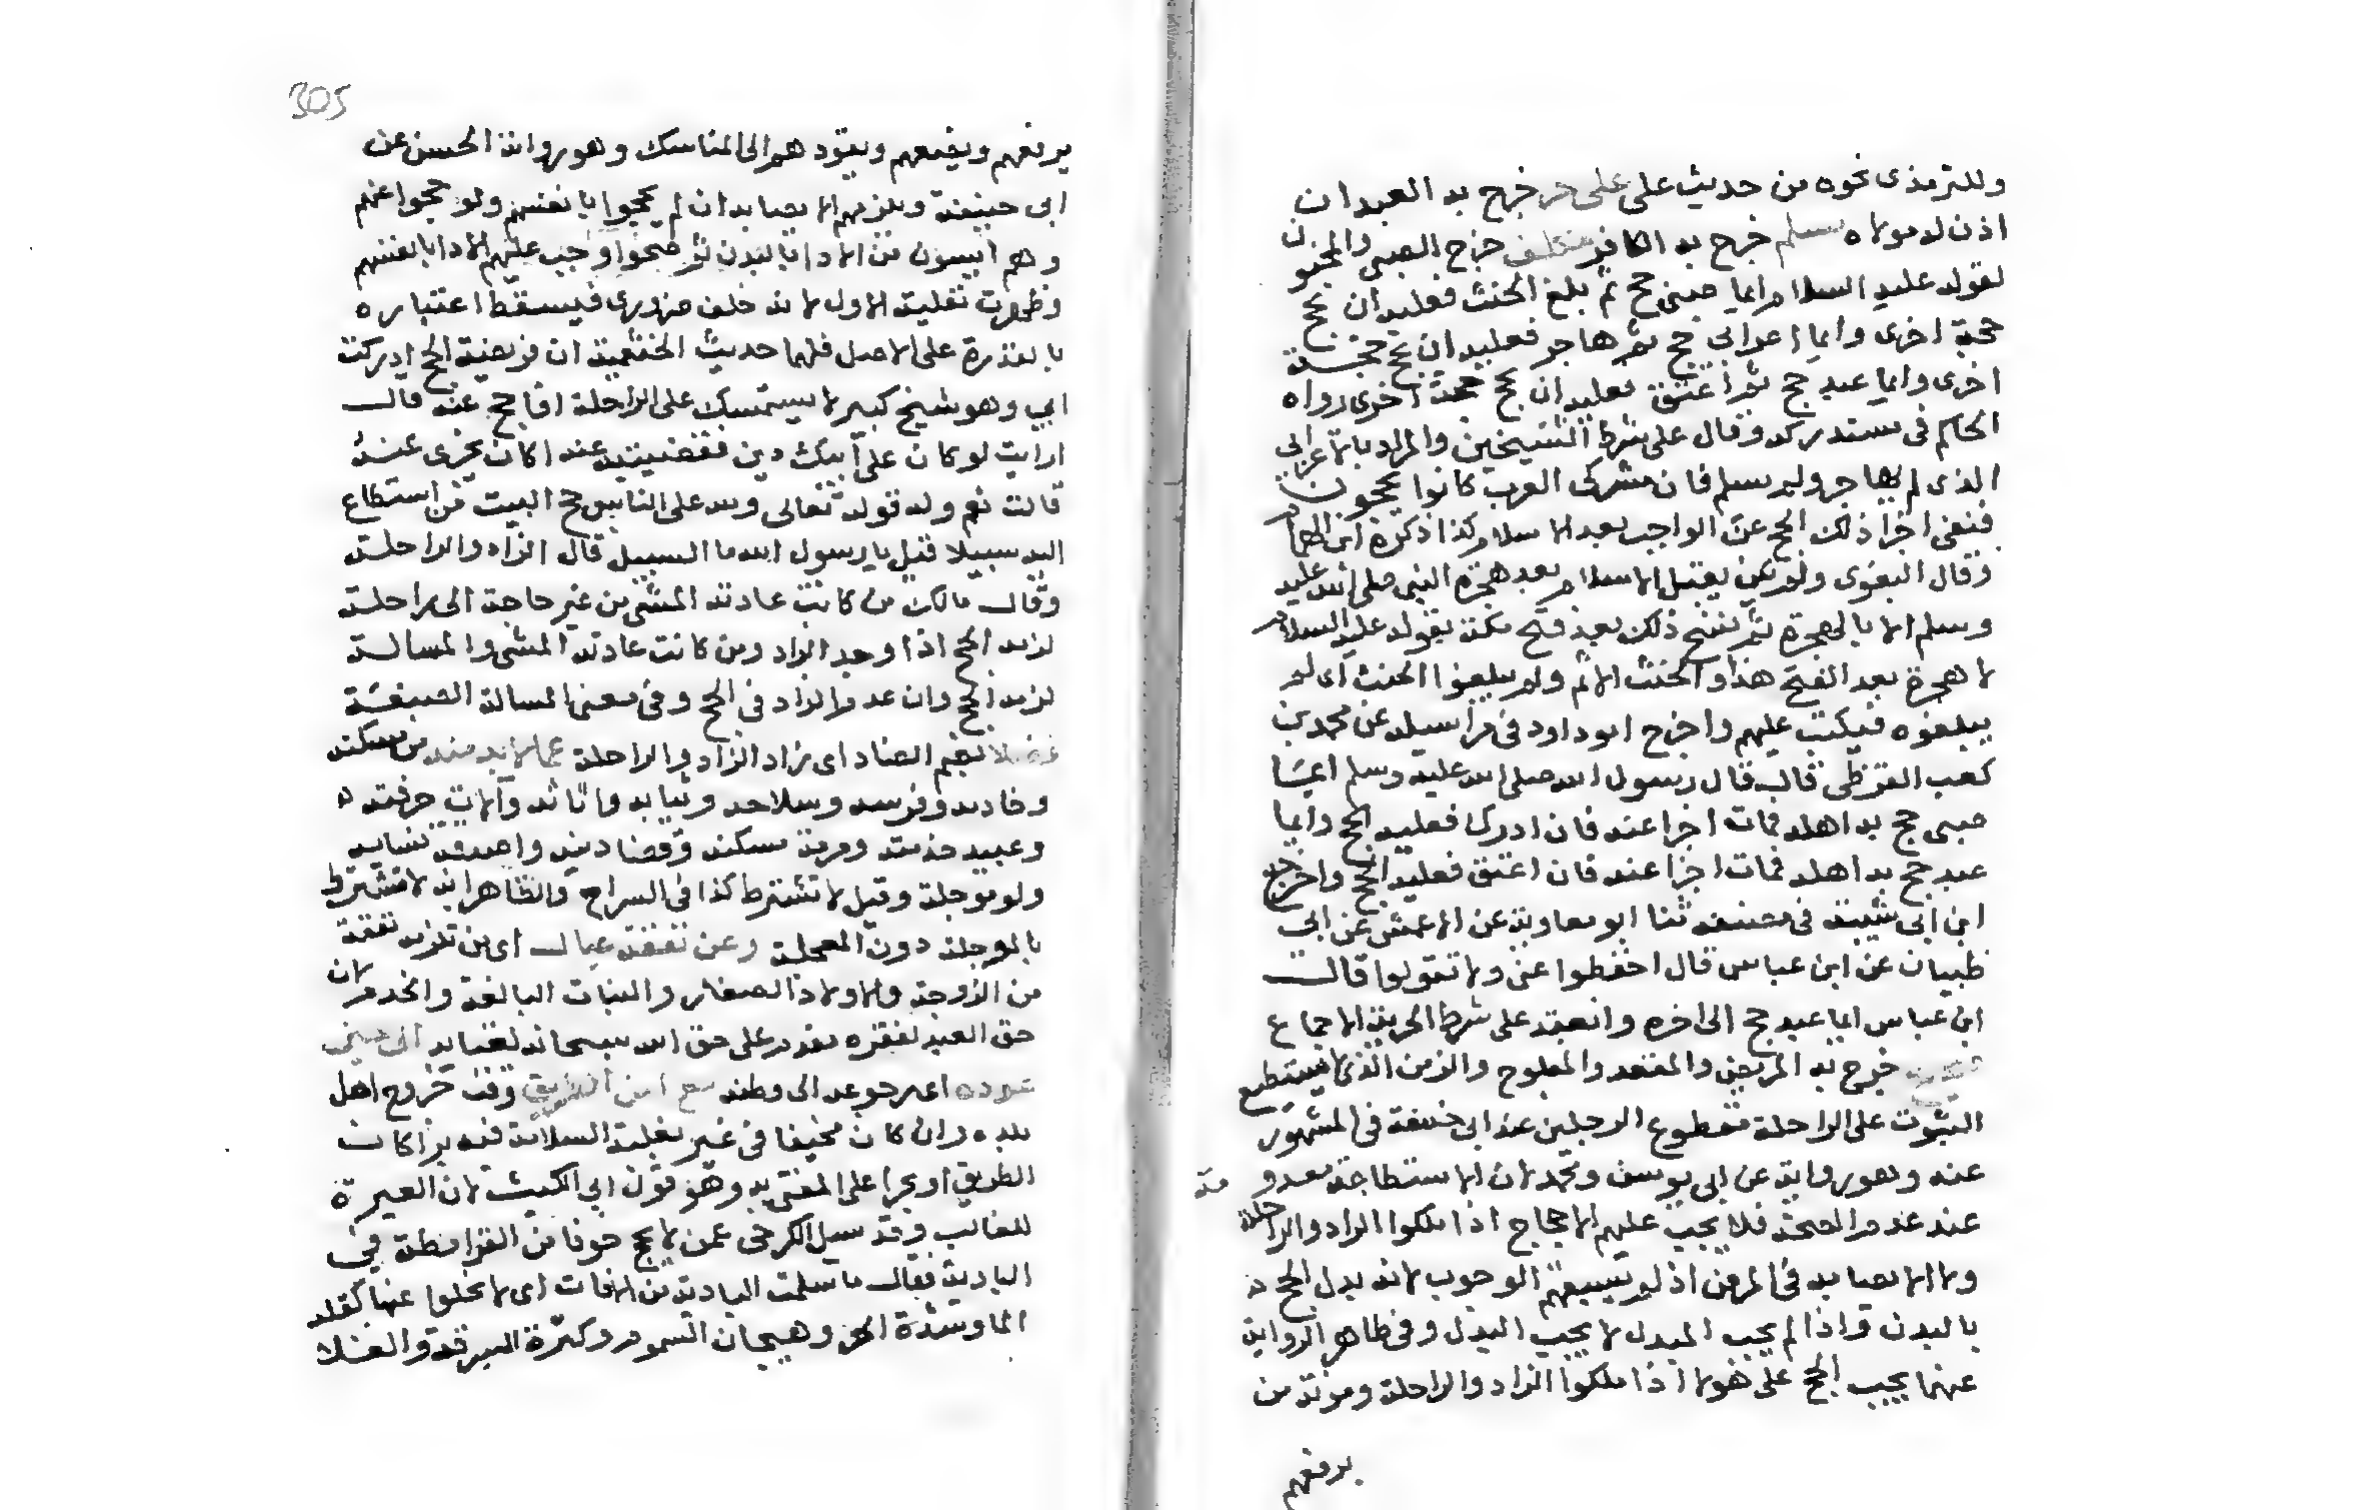 وللترمذى نحوه من حديث على على حر خرج به العبد ان
اذن له مولاه مسلم خرج به الكافر مكلف خرج الصبى والمجنون
لقوله عليه السلام ايما صبى حج ثم بلغ الحنث فعليه ان يحج
حجة اخرى وايما اعرابى حج ثم هاجر فعليه ان يحج حجة
اخرى وايما عبد حج ثم اعتق فعليه ان يحج حجة اخرى رواه
الحاكم فى مستدركه وقال على شرط الشيخين والمراد بالاعرابى
الذى لم يهاجر ولم يسلم فان مشركى العرب كانوا يحجون
فنفى اجزا ذلك الحج عن الواجب بعد الاسلام كذا ذكره ابن الهمام
وقال البغوى ولم يكن يقبل الاسلام بعد هجرة النبى صلى الله عليه
وسلم الا بالهجرة ثم نسخ ذلك بعد فتح مكة بقوله عليه السلام
لا هجرة بعد الفتح هذا والحنث الاثم ولم يبلغوا الحنث اى لم
يبلغوه فيكتب عليهم واخرج ابو داود فى مراسيله عن محمد بن
كعب القرظى قال قال رسول الله صلى الله عليه وسلم ايما
صبى حج به اهله فمات اجزا عنه فان ادرك فعليه الحج وايما
عبد حج به اهله فمات اجزا عنه فان اعتق فعليه الحج واخرج
ابن ابى شيبة فى مصنفه ثنا ابو معاوية عن الاعمش عن ابى
ظبيان عن ابن عباس قال احفظوا عنى ولا تقولوا قال
ابن عباس ايما عبد حج الى اخره وانعقد على شرط الحرية الاجماع
خرج به المريض والمقعد والمفلوج والزمن الذى لا يستطيع
الثبوت على الراحلة مقطوع الرجلين عند ابى حنيفة فى المشهور
عنه وهو رواية عن ابى يوسف ومحمد لان الاستطاعة معدومة
عند عدم الصحة فلا يجب عليهم الاحجاج اذا ملكوا الزاد والراحلة
ولا الايصا به فى المرض اذ لم يسبقهم الوجوب لانه بدل الحج
بالبدن واذا لم يجب المبدل لا يجب البدل وفى ظاهر الرواية
عنهما يجب الحج على هولا اذا ملكوا الزاد والراحلة ومونة من
يرفعهم
305
يرفعهم ويضعهم ويقودهم الى المناسك وهو رواية الحسن عن
ابى حنيفة ويلزمهم الايصا به ان لم يحجوا بانفسهم ولو حججوا عنهم
وهم ايسون من الادا بالبدن ثم صحوا وجب عليهم الادا بانفسهم
وظهرت نفلية الاول لانه خلف ضرورى فيسقط اعتباره
بالقدرة على الاصل فلهما حديث الخثعمية ان فريضة الحج ادركت
ابى وهو شيخ كبير لا يستمسك على الراحلة افاحج عنه قال
ارايت لو كان على ابيك دين فقضيتيه عنه اكان يجزى عنه
قالت نعم وله قوله تعالى ولله على الناس حج البيت من استطاع
اليه سبيلا قيل يا رسول الله ما السبيل قال الزاد والراحلة
وقال مالك من كانت عادته المشى من غير حاجة الى راحلة
لزمه الحج اذا وجد الزاد ومن كانت عادته المشى والمسالة
لزمه الحج وان عدم الزاد فى الحج وفى معنى المسالة الصنعة
فضلا بفتح الضاد اى زاد الزاد والراحلة عما لا بد منه من مسكنه
وخادمه وفرسه وسلاحه وثيابه واثاثه وآلات حرفته
وعبيد خدمته ومرمة مسكنه وقضا دينه واصدقة نسايه
ولو موجلة وقيل لا تشترط كذا فى السراج والظاهر انه لا تشترط
بالموجلة دون المعجلة وعن نفقة عياله اى من تلزمه نفقته
من الزوجة والاولاد الصغار والبنات البالغة والخدم لان
حق العبد لفقره مقدم على حق الله سبحانه لغنايه الى حين
عوده اى رجوعه الى وطنه مع امن الطريق وقت خروج اهل
بلده وان كان مخيفا فى غيره بغلبة السلامة فيه برا كان
الطريق او بحرا على المفتى به وهو قول ابى الليث لان العبرة
للغالب وقد سيل الكرخى عمن لا يحج خوفا من القرامطة فى
البادية فقال ما سلمت البادية من الافات اى لا تخلوا عنها كقلة
الما وشدة الحر وهيجان السموم وكثرة السرقة والغلا